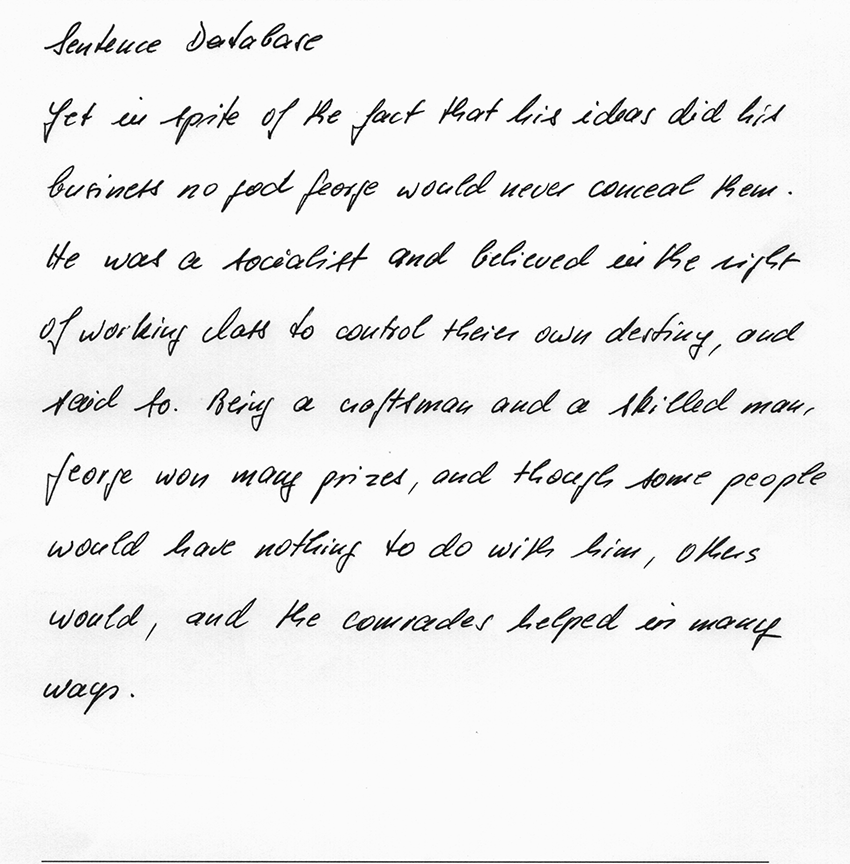 Sentence Database
Yet in spite of the fact that his ideas did his
business no god George would never conceal them.
He was a socialist and believed in the right
of working class to control their own destiny, and
said so. Being a craftsman and a skilled man,
George won many prizes, and though some people
would have nothing to do with him, others
would, and the comrades helped in many
ways.